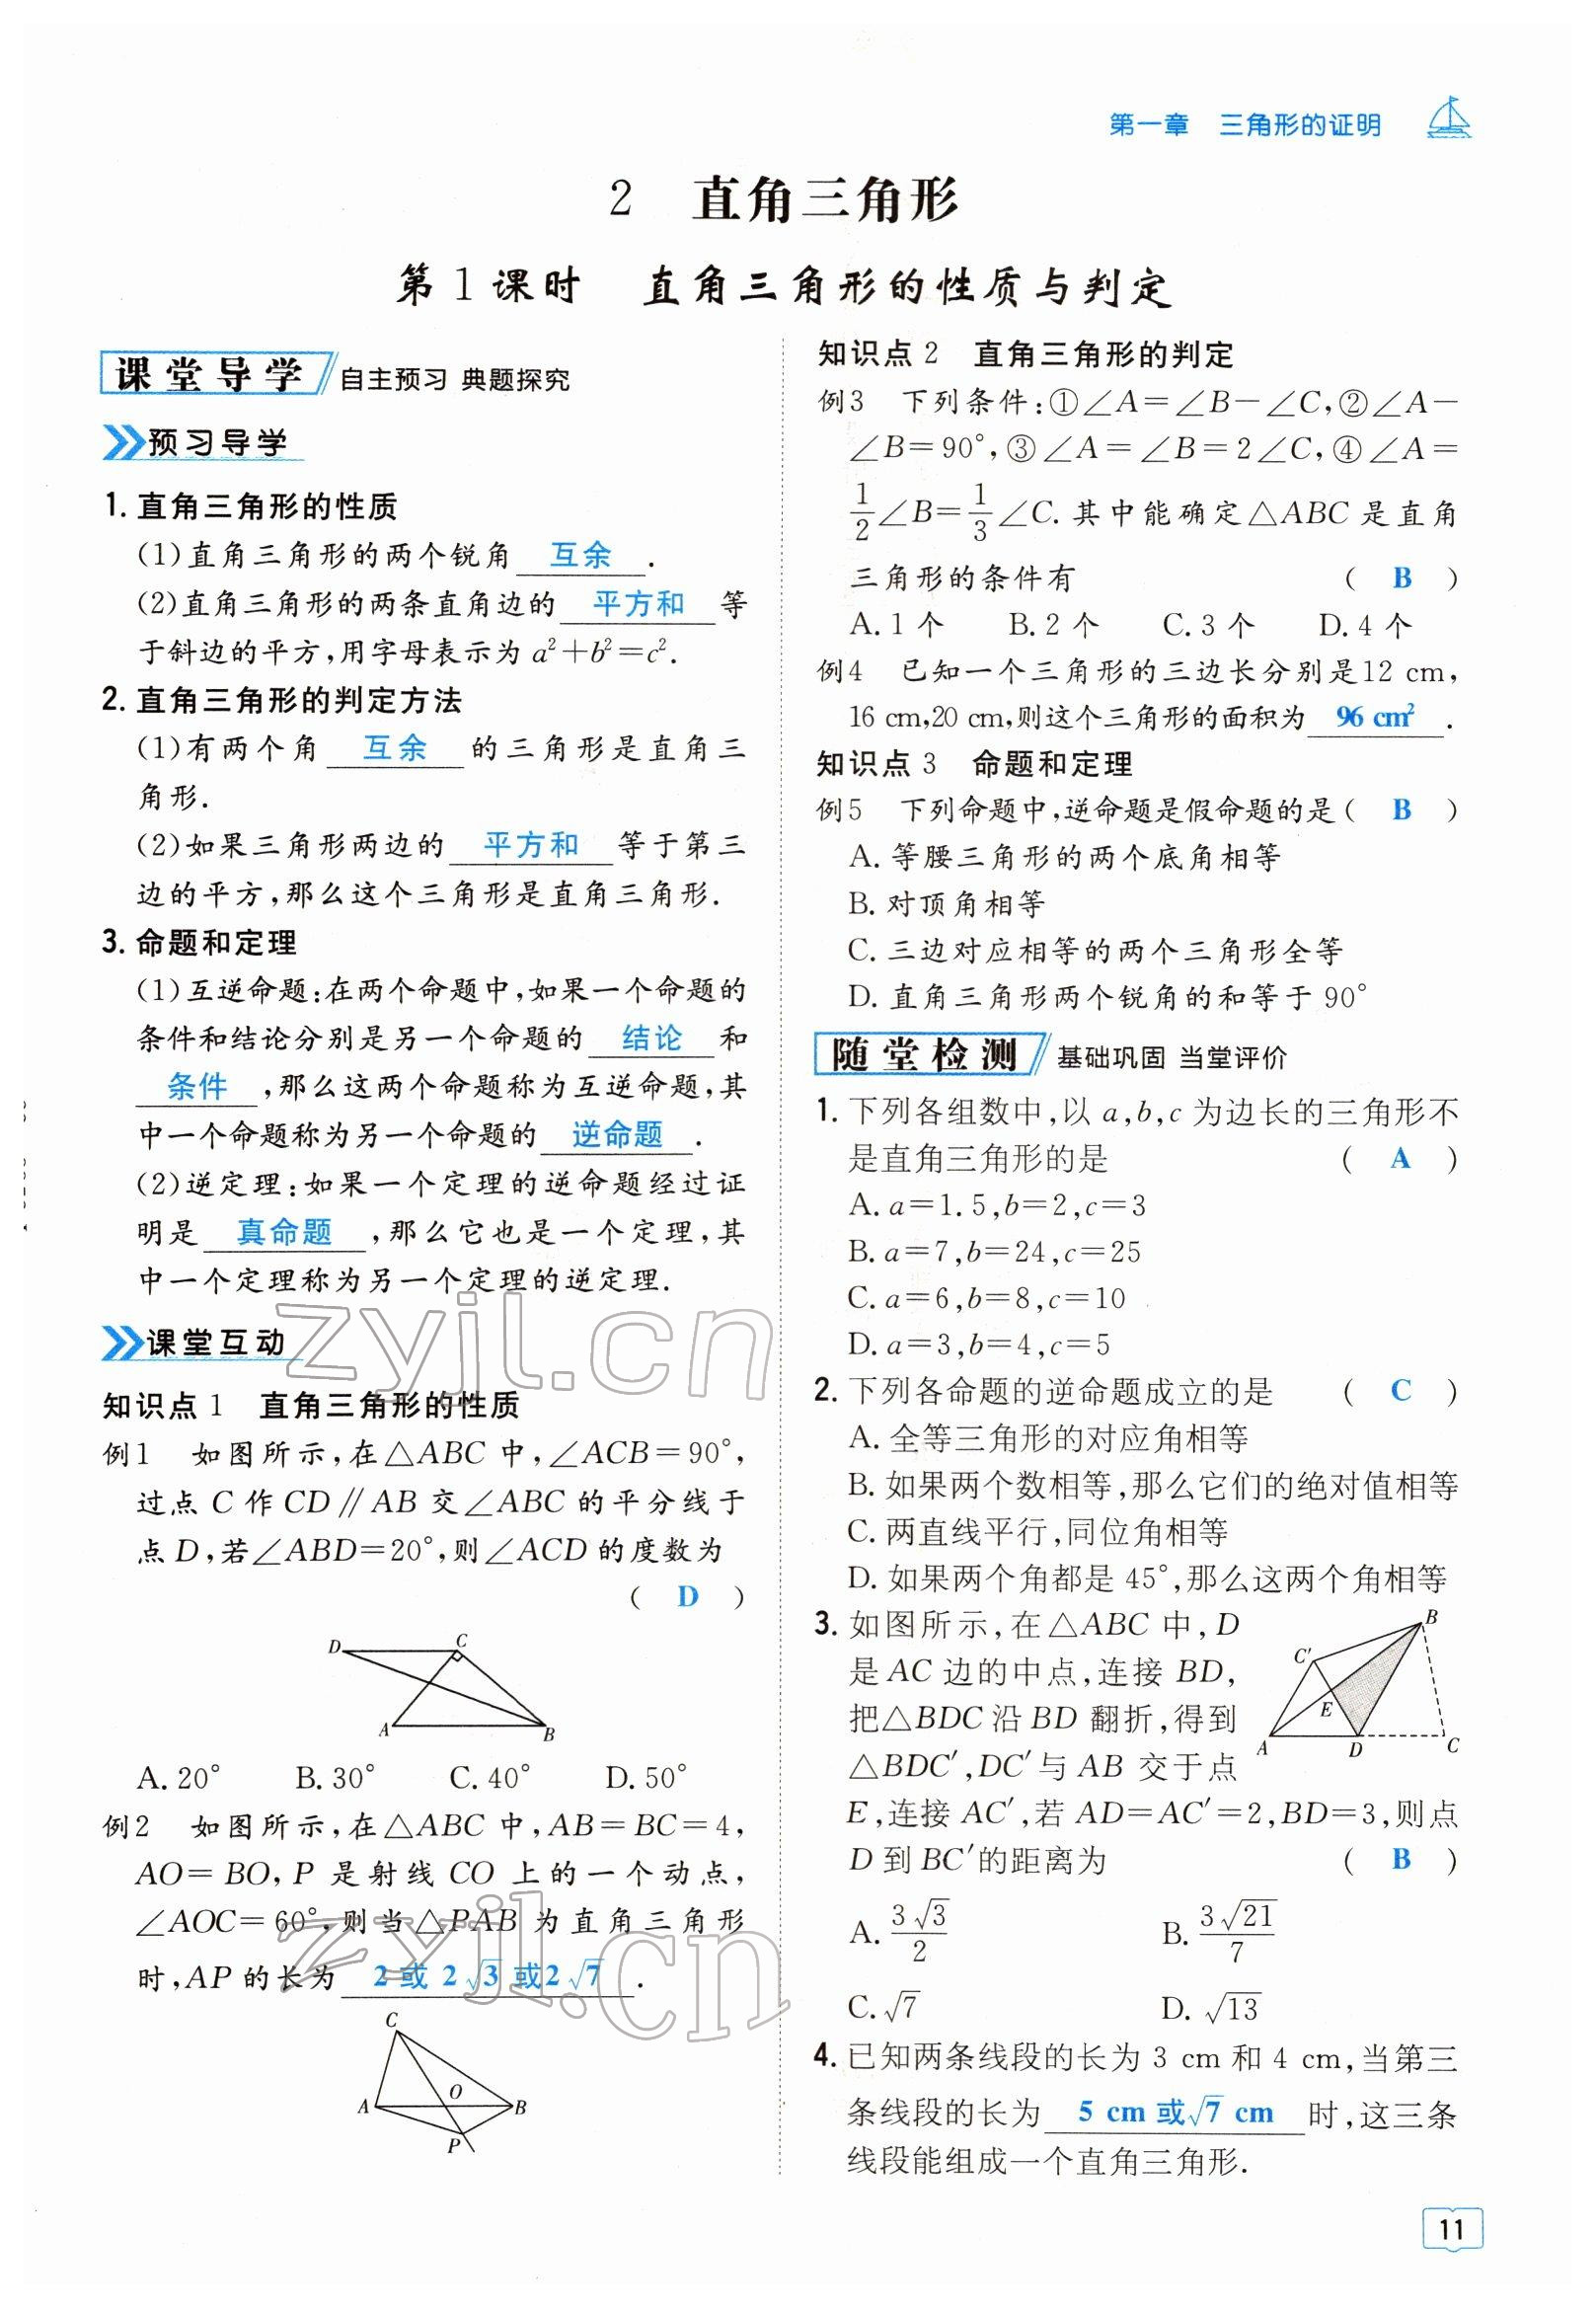 第一章 三角形的证明
2 直角三角形
第1课时 直角三角形的性质与判定
课堂导学 自主预习 典题探究
预习导学
1. 直角三角形的性质
(1)直角三角形的两个锐角 互余 .
(2)直角三角形的两条直角边的 平方和 等
于斜边的平方,用字母表示为 a²+b²=c².
2. 直角三角形的判定方法
(1)有两个角 互余 的三角形是直角三
角形.
(2)如果三角形两边的 平方和 等于第三
边的平方,那么这个三角形是直角三角形.
3. 命题和定理
(1)互逆命题:在两个命题中,如果一个命题的
条件和结论分别是另一个命题的 结论 和
条件 ,那么这两个命题称为互逆命题,其
中一个命题称为另一个命题的 逆命题 .
(2)逆定理:如果一个定理的逆命题经过证
明是 真命题 ,那么它也是一个定理,其
中一个定理称为另一个定理的逆定理.
zyjl.cn
课堂互动
知识点1 直角三角形的性质
例1 如图所示,在△ABC 中,∠ACB=90°,
过点 C 作 CD∥AB 交∠ABC 的平分线于
点 D,若∠ABD=20°,则∠ACD 的度数为
( D )
D C
A B
A. 20° B. 30° C. 40° D. 50°
例2 如图所示,在△ABC 中,AB=BC=4,
AO=BO,P 是射线 CO 上的一个动点,
∠AOC=60°,则当△PAB 为直角三角形
时,AP 的长为 2 或 2√3 或2√7 .
zyjl.cn
C
A O B
P
知识点2 直角三角形的判定
例3 下列条件:①∠A=∠B-∠C,②∠A-
∠B=90°,③∠A=∠B=2∠C,④∠A=
1/2∠B=1/3∠C. 其中能确定△ABC 是直角
三角形的条件有 ( B )
A. 1 个 B. 2 个 C. 3 个 D. 4 个
例4 已知一个三角形的三边长分别是12 cm,
16 cm,20 cm,则这个三角形的面积为 96 cm² .
知识点3 命题和定理
例5 下列命题中,逆命题是假命题的是( B )
A. 等腰三角形的两个底角相等
B. 对顶角相等
C. 三边对应相等的两个三角形全等
D. 直角三角形两个锐角的和等于 90°
随堂检测 基础巩固 当堂评价
1. 下列各组数中,以 a,b,c 为边长的三角形不
是直角三角形的是 ( A )
A. a=1.5,b=2,c=3
B. a=7,b=24,c=25
C. a=6,b=8,c=10
D. a=3,b=4,c=5
2. 下列各命题的逆命题成立的是 ( C )
A. 全等三角形的对应角相等
B. 如果两个数相等,那么它们的绝对值相等
C. 两直线平行,同位角相等
D. 如果两个角都是 45°,那么这两个角相等
3. 如图所示,在△ABC 中,D
是 AC 边的中点,连接 BD,
把△BDC 沿 BD 翻折,得到
△BDC′,DC′与 AB 交于点
E,连接 AC′,若 AD=AC′=2,BD=3,则点
D 到 BC′的距离为 ( B )
B
C′
E
A D C
A. 3√3/2 B. 3√21/7
C. √7 D. √13
4. 已知两条线段的长为 3 cm 和 4 cm,当第三
条线段的长为 5 cm 或√7 cm 时,这三条
线段能组成一个直角三角形.
11